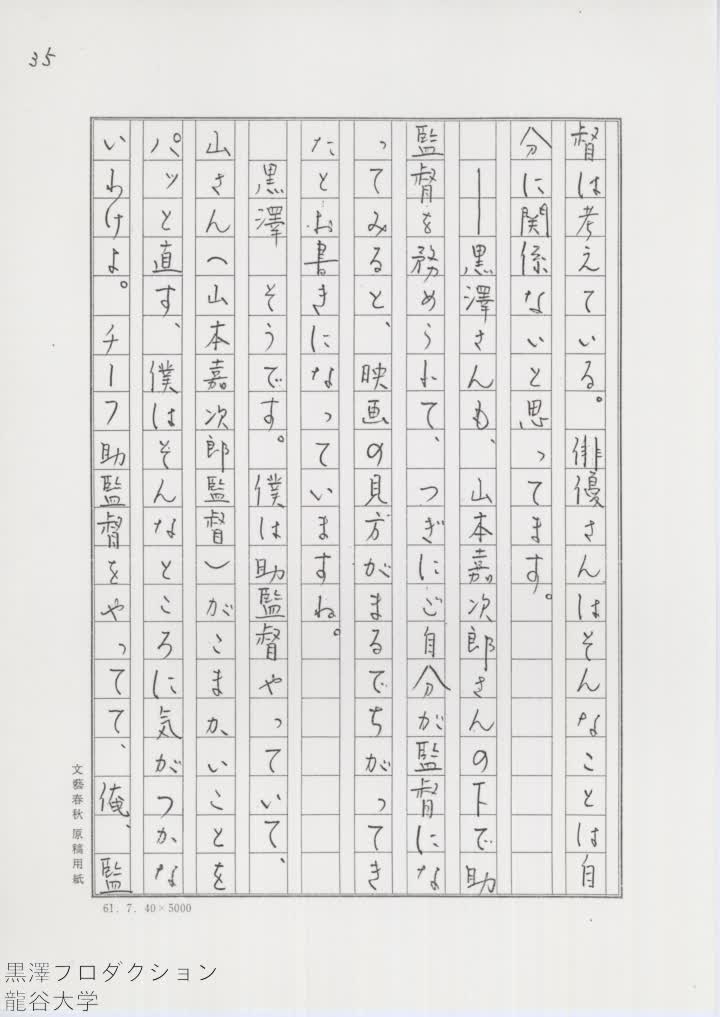 35
督は考えている。俳優さんはそんなことは自
分に関係ないと思ってます。
――黒澤さんも、山本嘉次郎さんの下で助
監督を務められて、つぎにご自分が監督にな
ってみると、映画の見方がまるでちがってき
たとお書きになっていますね。
黒澤　そうです。僕は助監督やっていて、
山さん（山本嘉次郎監督）がこまかいことを
パッと直す、僕はそんなところに気がつかな
いわけよ。チーフ助監督をやってて、俺、監
文藝春秋 原稿用紙
61. 7. 40×5000
黒澤フロダクション
龍谷大学